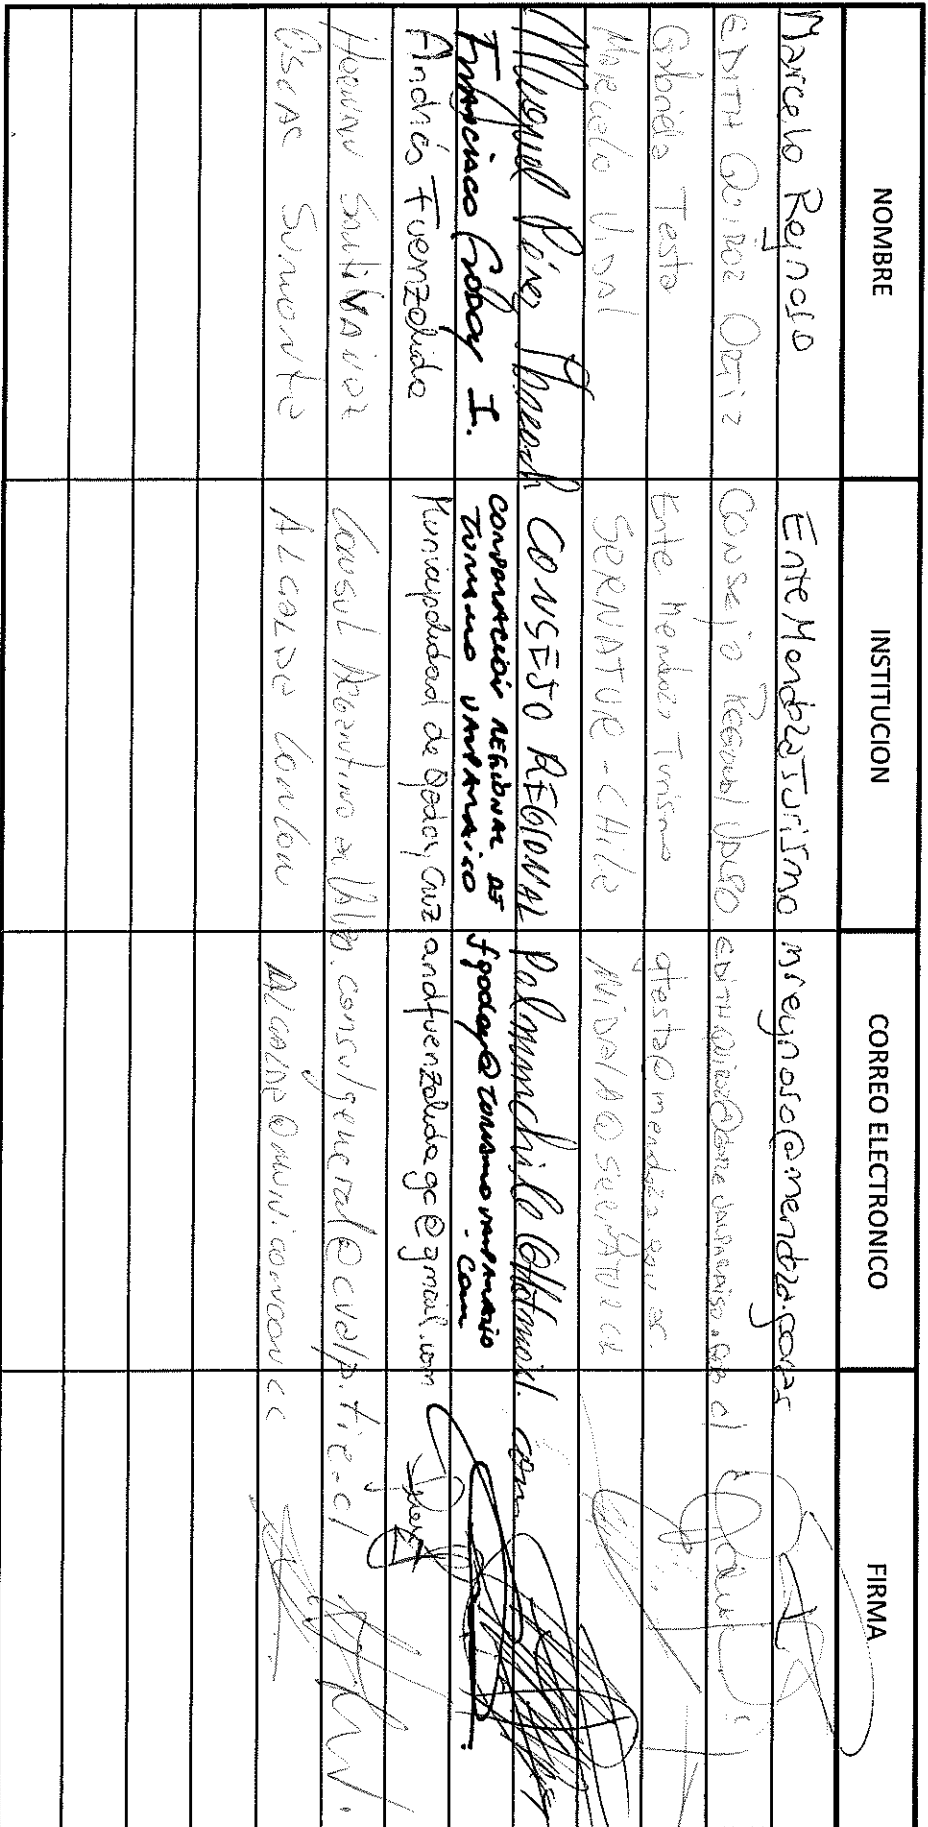 NOMBRE INSTITUCION CORREO ELECTRONICO FIRMA
Marcelo Reynoso Ente Mendoza Turismo mreynoso@mendoza.gov.ar
EDITH QUIROZ ORTIZ CONSEJO REGIONAL VALPO
Gabriela Testa Ente Mendoza Turismo gtesta@mendoza.gov.ar.
MARCELO VIDAL SERNATUR - CHILE MVIDAL@SERNATUR.CL
Miguel CONSEJO REGIONAL palmunchile@hotmail.com
FRANCISCO GODOY I. CORPORACIÓN REGIONAL DE
TURISMO VALPARAISO fgodoy@turismovalparaiso
.com
Andrés Fuenzalida Municipalidad de Godoy Cruz andfuenzalidagc@gmail.com
Consul Argentino en Valpo. consulgeneral@cvalp.tie.cl
OSCAR SUMONTE ALCALDE CONCON